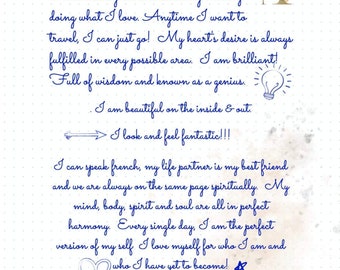 doing what I love. Anytime I want to
travel, I can just go! My heart's desire is always
fulfilled in every possible area. I am brilliant!
Full of wisdom and known as a genius.
. I am beautiful on the inside & out.
I look and feel fantastic!!!
I can speak french, my life partner is my best friend
and we are always on the same page spiritually. My
mind, body, spirit and soul are all in perfect
harmony. Every single day, I am the perfect
version of my self. I love myself for who I am and
who I have yet to become!